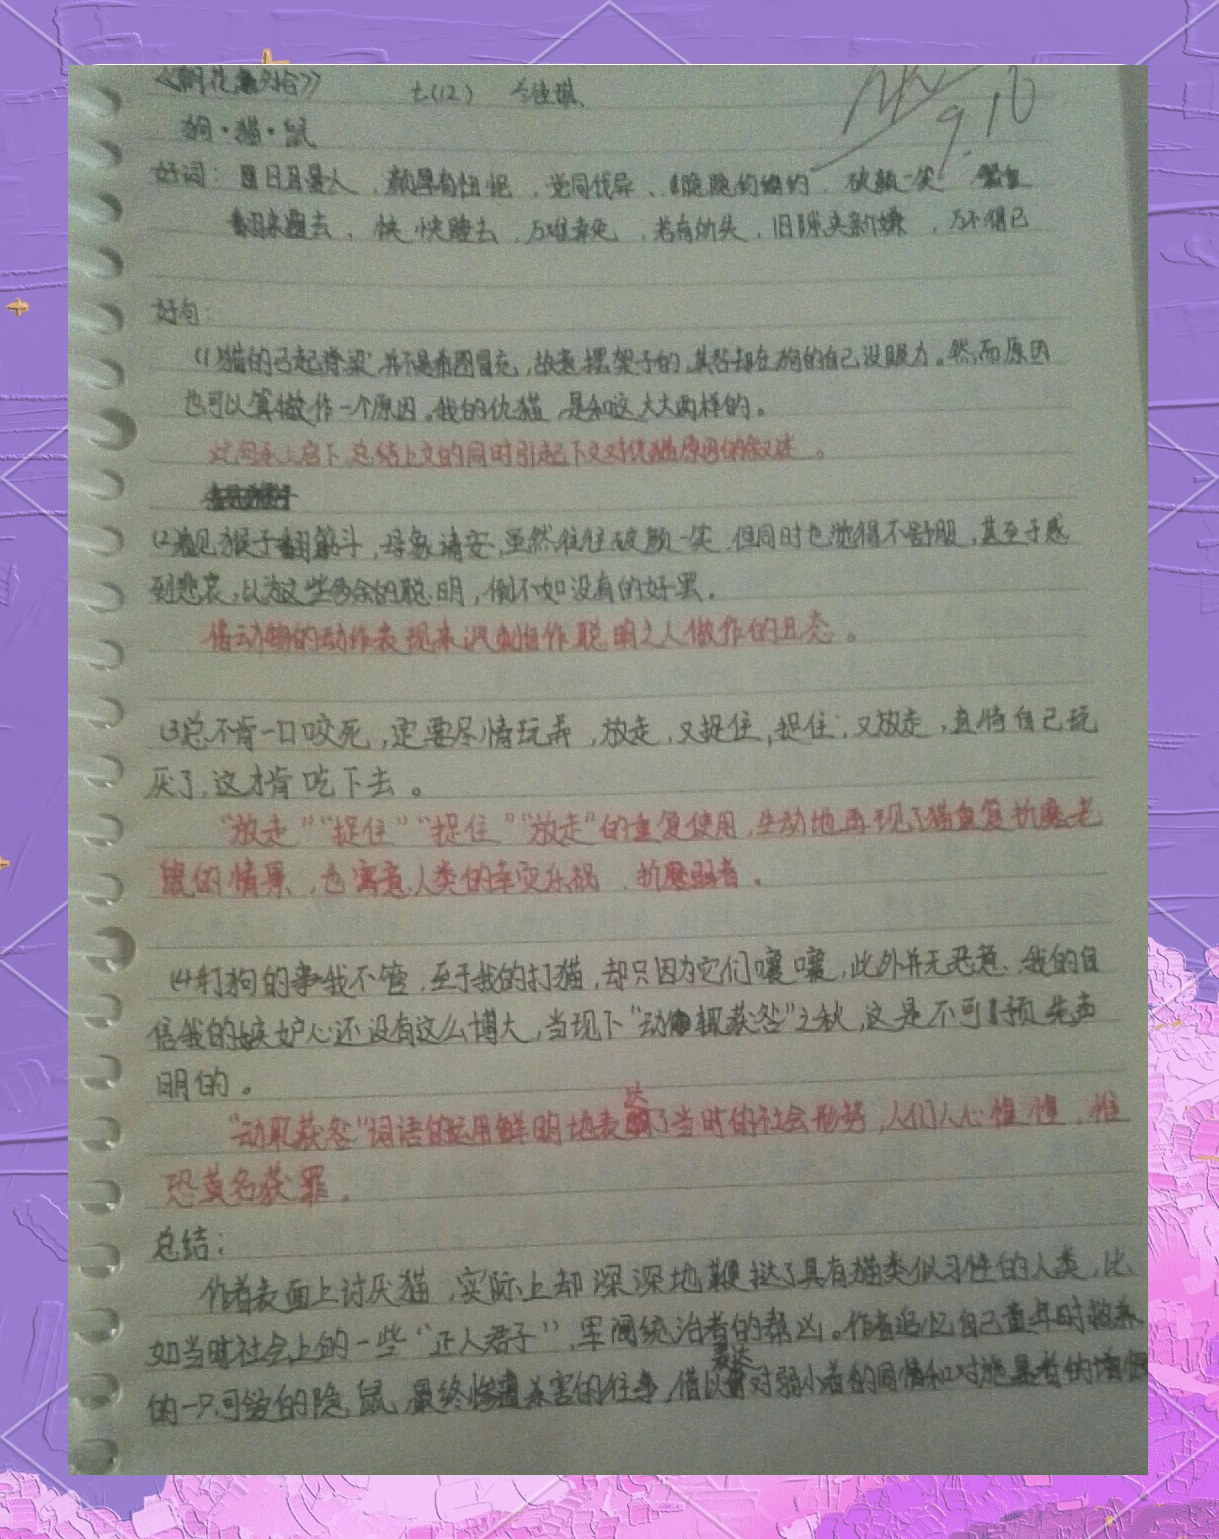 《朝花夕拾》 七(12)
狗·猫·鼠
好词: 人，颇有忸怩，党同伐异、，破颜一笑
，快快睡去，万难幸免，若有的头，旧隙夹新嫌，万不得已
好句:
(1)猫的弓起脊梁，并不是希图冒充，故意摆架子的，其咎却在狗的自己没眼力。然而原因
也可以算做作一个原因。我的仇猫，是和这大大两样的。
此句承上启下，总结上文的同时引起下文对仇猫原因的叙述。
(2)看见猴子翻筋斗，母象请安，虽然往往破颜一笑，但同时也觉得不舒服，甚至于感
到悲哀，以为这些多余的聪明，倒不如没有的好罢。
借动物的动作表现来讽刺自作聪明之人做作的丑态。
(3)总不肯一口咬死，定要尽情玩弄，放走，又捉住，捉住，又放走，直待自己玩
厌了，这才肯吃下去。
“放走”“捉住”“捉住”“放走”的重复使用，生动地再现了猫重复折磨老
鼠的情景，也寓意人类的幸灾乐祸，折磨弱者。
(4)打狗的事我不管，至于我的打猫，却只因为它们嚷嚷，此外并无恶意，我的自
信我的嫉妒心还没有这么博大，当现下“动辄获咎”之秋，这是不可不预先声
明的。
“动取获咎”词语的运用鲜明地表达了当时的社会形势，人们人心惶惶，惟
恐莫名获罪。
总结:
作者表面上讨厌猫，实际上却深深地鞭挞了具有猫类似习性的人类，比
如当时社会上的一些“正人君子”，军阀统治者的帮凶。作者追忆自己童年时救养
的一只可爱的隐鼠，最终惨遭杀害的往事，借以表达对弱小者的同情和对施暴者的憎恨